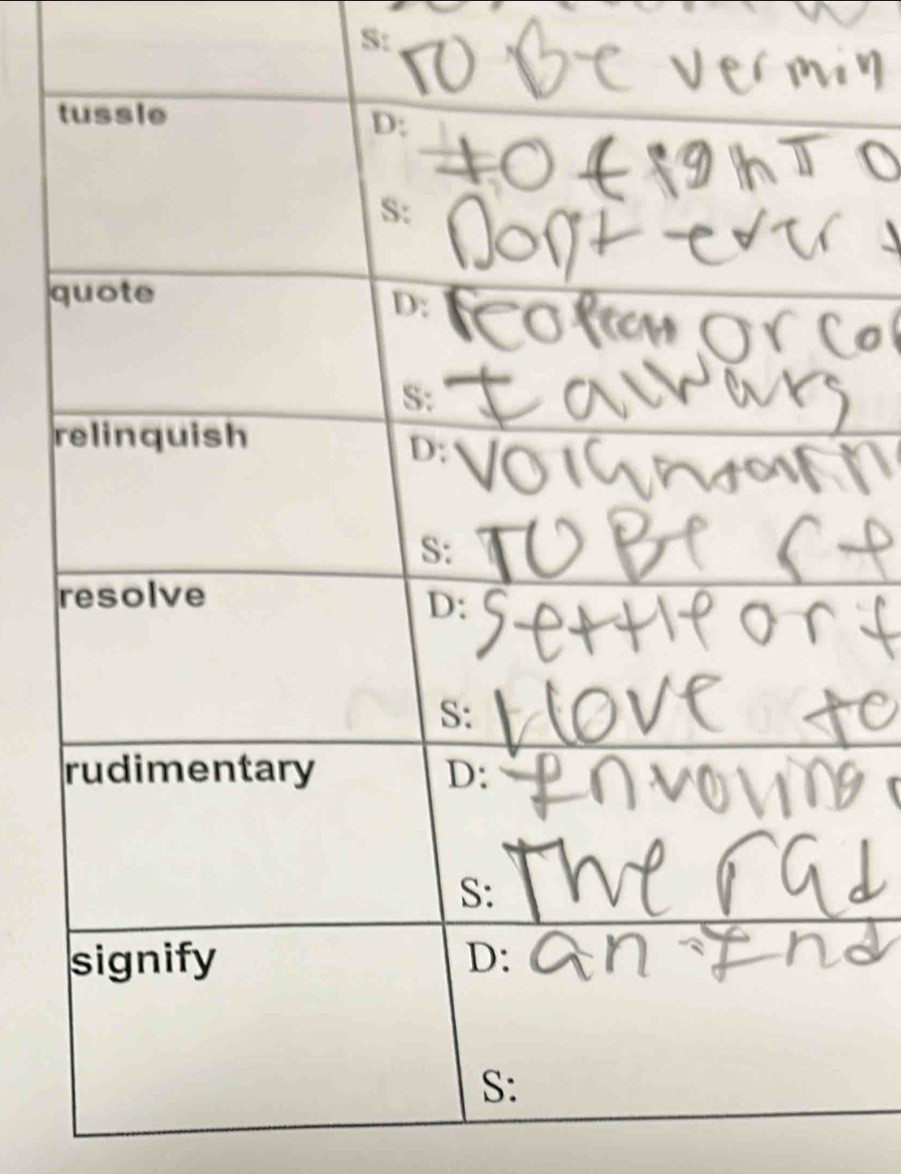 S: TO Be vermin
tussle
D: to fight o
S: Don't ever
quote
D: or co
S: I always
relinquish
D:
S: TO Be re
resolve
D: settle or f
S: I love to
rudimentary
D: Invoving
S: The rud
signify
D: an Ind
S: